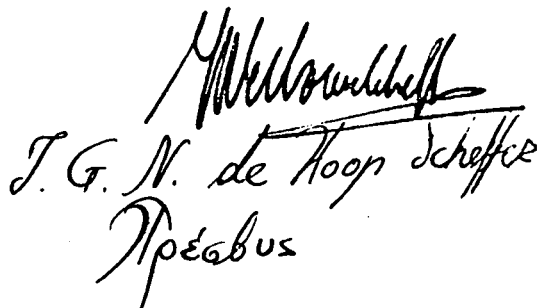 J. G. N. de Hoop Scheffer
Πρέσβυς